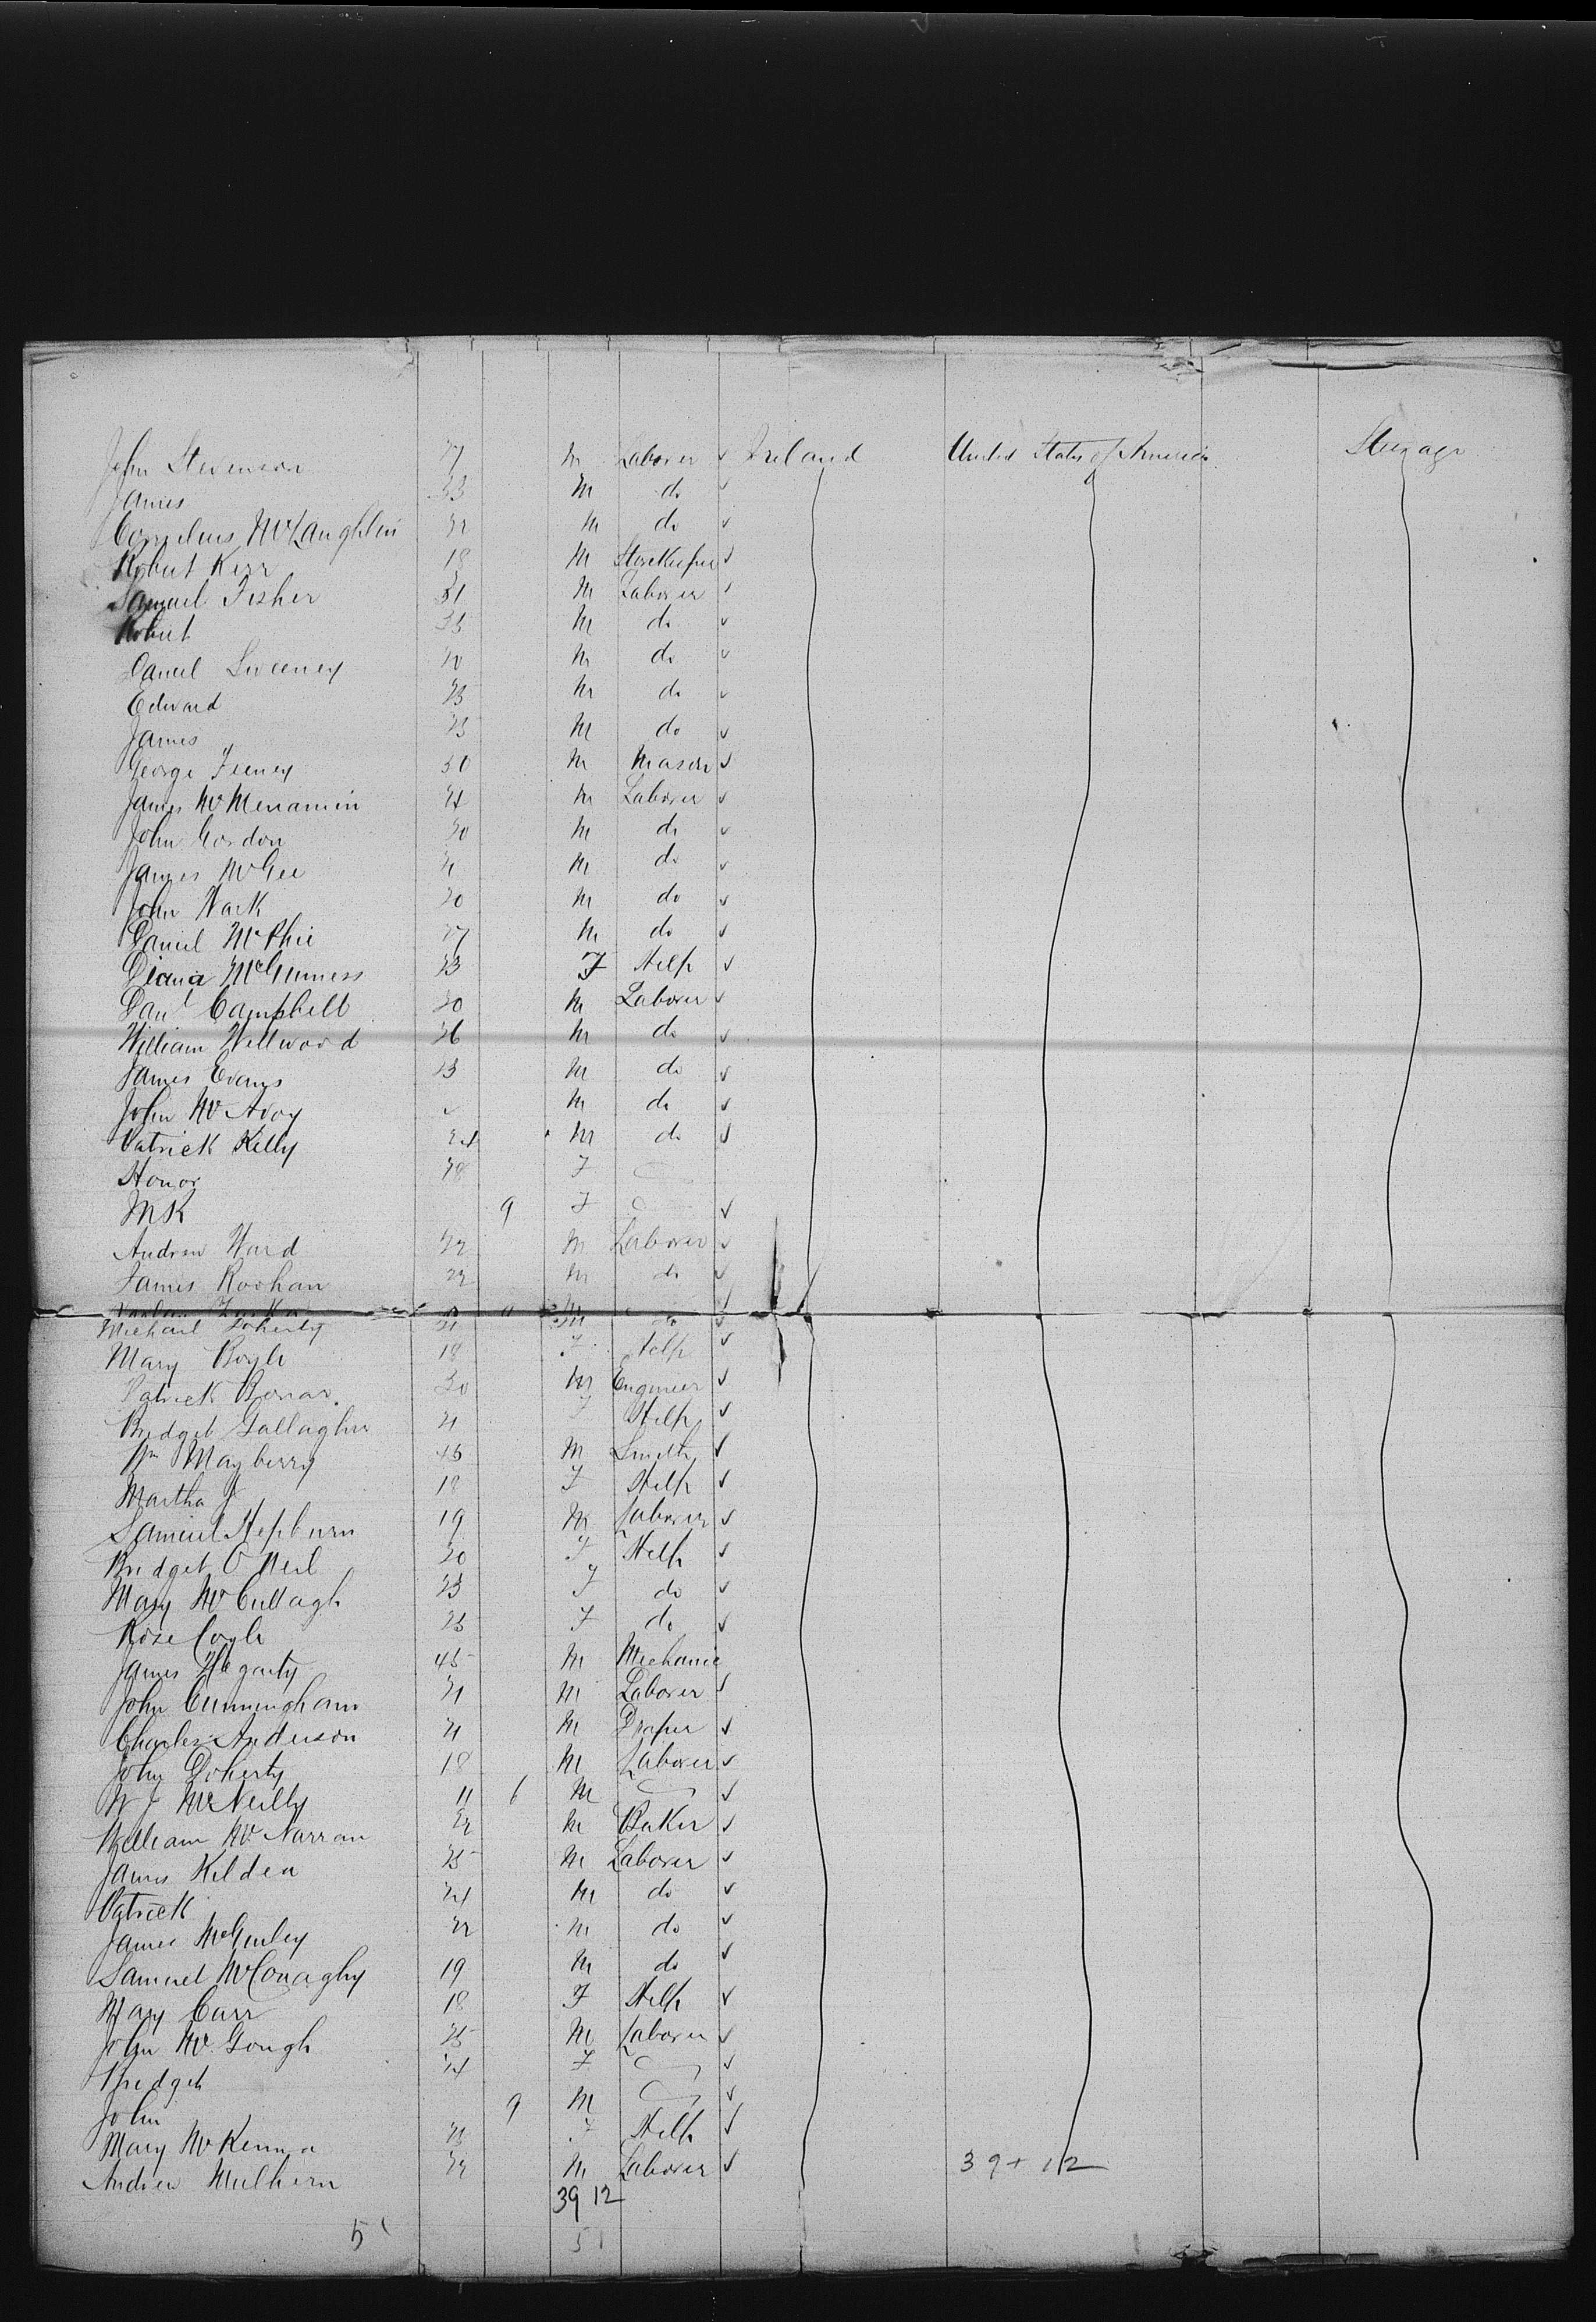 John Stevenson 27 M Laborer ✓ Ireland United States of America Steerage
James 33 M do ✓
Cornelius McLaughlin 22 M do ✓
Robert Kerr 18 M Storekeeper ✓
Samuel Fisher 31 M Laborer ✓
Robert 35 M do ✓
Daniel Sweeney 20 M do ✓
Edward 25 M do ✓
James 25 M do ✓
George Feeney 30 M Mason ✓
James McMenamin 24 M Laborer ✓
John Gordon 20 M do ✓
James McGee 21 M do ✓
John Wark 20 M do ✓
Daniel McPhie 27 M do ✓
Diana McGinness 23 F Help ✓
Danl Campbell 20 M Laborer ✓
William Wellwood 26 M do ✓
James Evans 23 M do ✓
John McAvoy M do ✓
Patrick Kelly 24 M do ✓
Honor 28 F
MK 9 F ✓
Andrew Ward 22 M Laborer ✓
James Roohan 22 M do ✓
Michael Doherty 21 M do ✓
Mary Boyle 18 F Help ✓
Patrick Bonar 30 M Engineer ✓
Bridget Gallagher 21 F Help ✓
Wm Mayberry 45 M Smith ✓
Martha J 18 F Help ✓
Samuel Hepburn 19 M Laborer ✓
Bridget O Neil 20 F Help ✓
Mary McCullagh 23 F do ✓
Rose Coyle 25 F do ✓
James Hegarty 45 M Mechanic
John Cunningham 21 M Laborer ✓
Charles Anderson 21 M Draper ✓
John Doherty 18 M Laborer ✓
W J McNeilly 11 6 M ✓
William McNarran 22 M Baker ✓
James Kildea 25 M Laborer ✓
Patrick 24 M do ✓
James McGinley 22 M do ✓
Samuel McConaghy 19 M do ✓
Mary Carr 18 F Help ✓
John McGough 25 M Laborer ✓
Bridget 24 F ✓
John 9 M ✓
Mary McKenna 21 F Help ✓
Andrew Mulhern 22 M Laborer ✓ 39 + 12
39 12
51 51